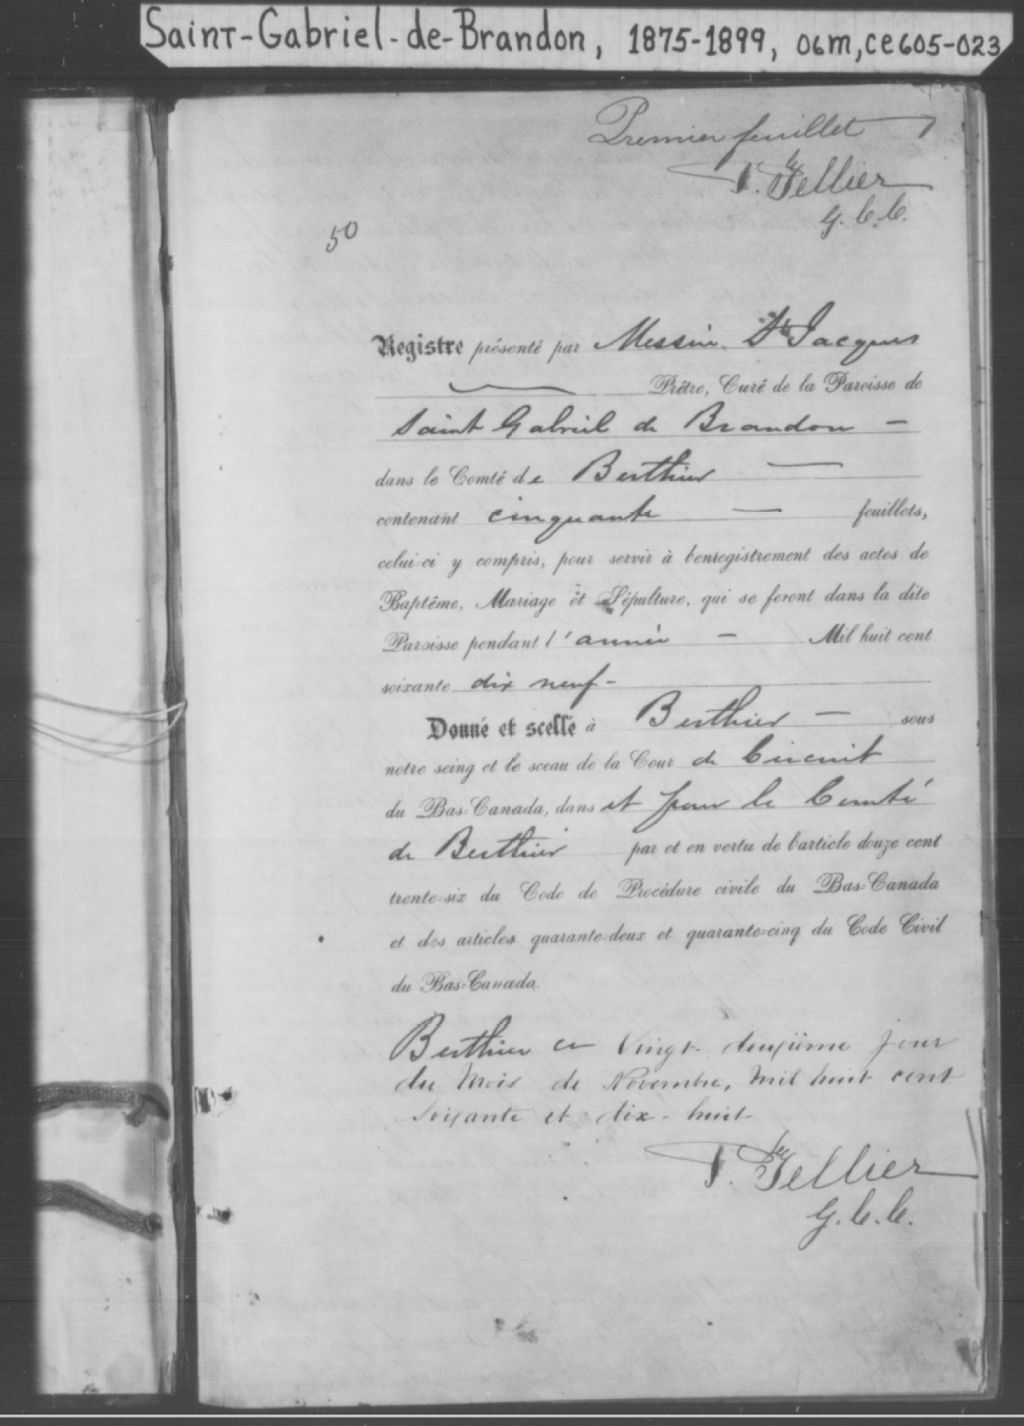 Saint-Gabriel-de-Brandon, 1875-1899, 06m,ce605-023
Premier feuillet
P. Tellier
G.C.C.
50
Registre présenté par Messire St Jacques
Prêtre, Curé de la Paroisse de
Saint Gabriel de Brandon -
dans le Comté de Berthier —
contenant cinquante — feuillets,
celui-ci y compris, pour servir à l'enregistrement des actes de
Baptême, Mariage et Sépulture, qui se feront dans la dite
Paroisse pendant l'année - Mil huit cent
soixante dix neuf -
Donné et scellé à Berthier - sous
notre seing et le sceau de la Cour de Circuit
du Bas-Canada, dans et pour le Comté
de Berthier par et en vertu de l'article douze cent
trente-six du Code de Procédure civile du Bas-Canada
et des articles quarante-deux et quarante-cinq du Code Civil
du Bas-Canada.
Berthier ce Vingt deuxième jour
du Mois de Novembre, Mil huit cent
Soixante et dix-huit
P. Tellier
G.C.C.